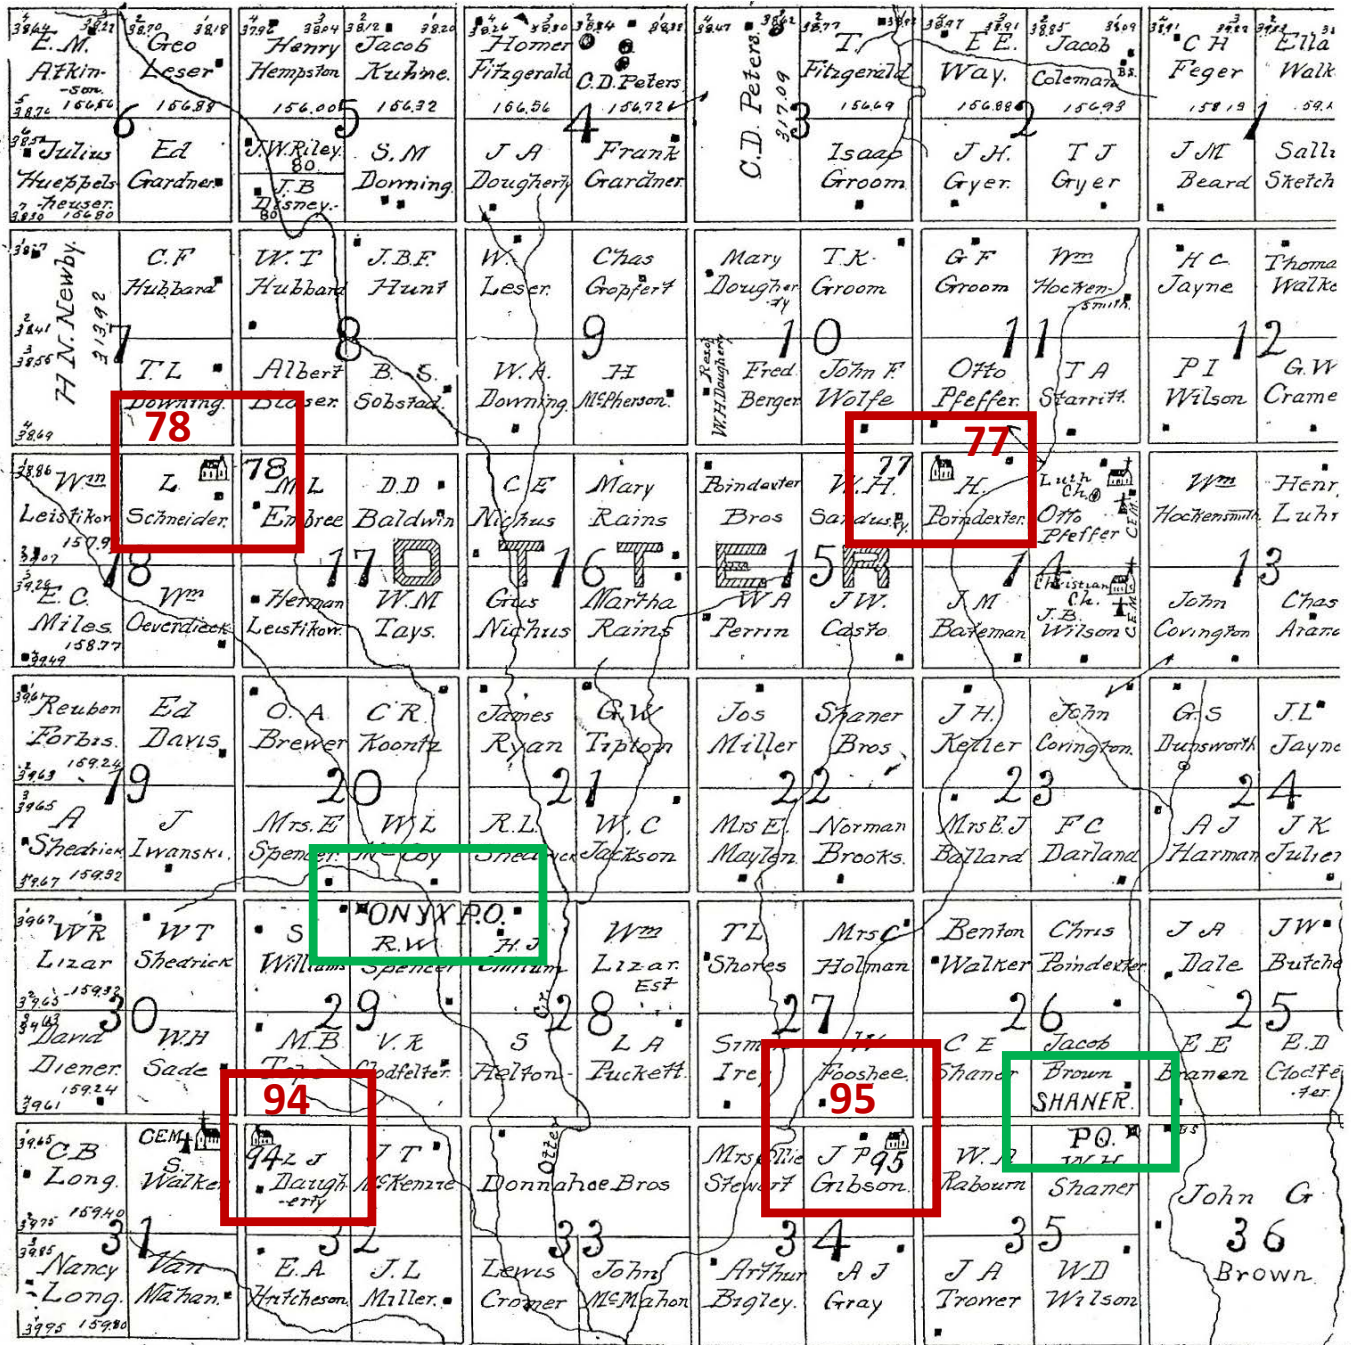 E. M.
Atkin-
-son.
156.56
Geo
Leser
156.88
Henry
Hempston
156.00
Jacob
Kuhne.
156.32
Homer
Fitzgerald
156.56
C.D. Peters
156.72
C.D. Peters.
317.09
T.
Fitzgerald
156.69
E E.
Way.
156.88
Jacob
Coleman
B.S.
156.93
C H
Feger
158 19
Ella
Walk
59.
6
5
4
3
2
1
Julius
Hueppels
-heuser.
156 80
Ed
Gardner
J.W. Riley.
80.
J.B
Disney.
80
S. M
Downing.
J A
Dougherty
Frank
Gardner.
Isaac
Groom
J.H.
Gryer.
T J
Gryer
J M
Beard
Salli
Sketch
H N. Newby.
313.92
C. F
Hubbard
W. T
Hubbard
J.B.F.
Hunt
W.
Leser.
Chas
Gopfert
Mary
Dougher
-ty
T.K.
Groom
G F
Groom
Wm
Hocken-
smith.
H C.
Jayne
Thoma
Walke
7
8
9
10
11
12
T. L
Downing.
Albert
Blaser.
B. S.
Sobstad.
W. A.
Downing.
H
McPherson.
Res of
W.H. Dougherty
Fred.
Berger
John F
Wolfe
Otto
Pfeffer.
T A
Starritt.
P I
Wilson
G.W
Crame
78
77
Wm
Leistikon
L
Schneider.
78
M L
Embree
D.D
Baldwin
C E
Nichus
Mary
Rains
Poindexter
Bros
W.H.
Sandusky.
77
H.
Poindexter.
Luth
Ch.
Otto
Pfeffer
CEM.
Wm
Hockensmith
Henr
Luhr
18
17
16
15
14
13
OTTER
E. C.
Miles.
158.77
Wm
Oeverdieck
Herman
Leistikow.
W. M
Tays.
Gus
Nichus
Martha
Rains
W A
Perrin
J W.
Casto
J M
Bateman
Christian
Ch.
J. B.
Wilson
CEM
John
Covington
Chas
Arand
Reuben
Forbis.
159.24
Ed
Davis
O. A
Brewer
C R.
Koontz
James
Ryan
G.W
Tipton
Jos
Miller
Shaner
Bros
J H.
Keller
John
Covington.
G. S
Dunsworth
J.L
Jayne
19
20
21
22
23
24
A
Shedrick
159.92
J
Iwanski.
Mrs. E
Spencer.
W L
McCoy
R. L.
Shedrick
W, C
Jackson
Mrs E.
Maylen
Norman
Brooks.
Mrs E.J
Ballard
F C
Darland
A J
Harman
J K
Julier
W R
Lizar
159.92
W T
Shedrick
S
Williams
ONYX P.O.
R.W
Spencer
H. J
Wm
Lizar.
Est
T L
Shores
Mrs C
Holman
Benton
Walker
Chris
Poindexter
J A
Dale
J W
Butche
30
29
28
27
26
25
David
Diener.
159.24
W.H
Sade
M.B
V. R
Clodfelter.
S
Helton
L A
Puckett.
W
Fooshee.
C E
Shaner
Jacob
Brown
SHANER.
P.O.
E E
Branen
E.D
Clodfe
-ter.
94
95
C.B
Long.
159.40
CEM
S.
Walker
94 L J
Daugh
-erty
J T
McKenzie
Donnahoe Bros
Otter
Cr.
Mrs Ollie
Stewart
J P
Gibson.
95
W. A
Rabourn
W.H
Shaner
B S
John G
Brown.
31
32
33
34
35
36
Nancy
Long.
159.80
Van
Nathan.
E. A
Hutcheson
J. L
Miller.
Lewis
Cromer
John
McMahon
Arthur
Bigley.
A J
Gray
J A
Trower
W D
Wilson